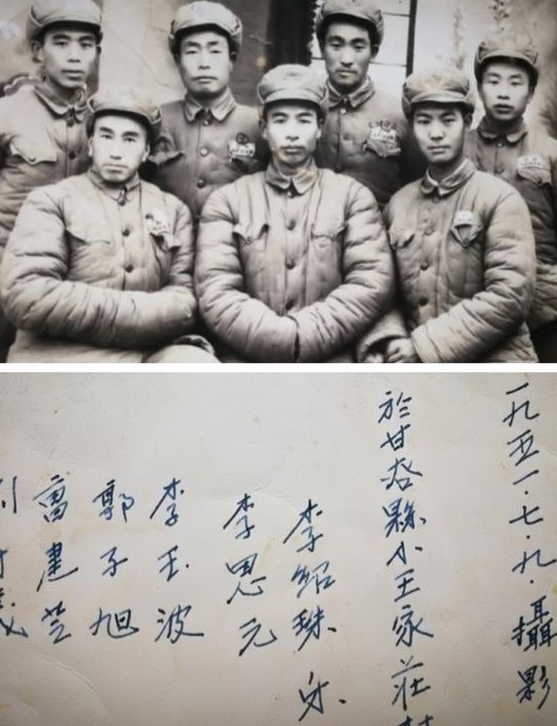 一九五一·七·九·攝影
於甘谷縣小王家莊
李紹珠
李恩元
李玉波
郭子旭
建